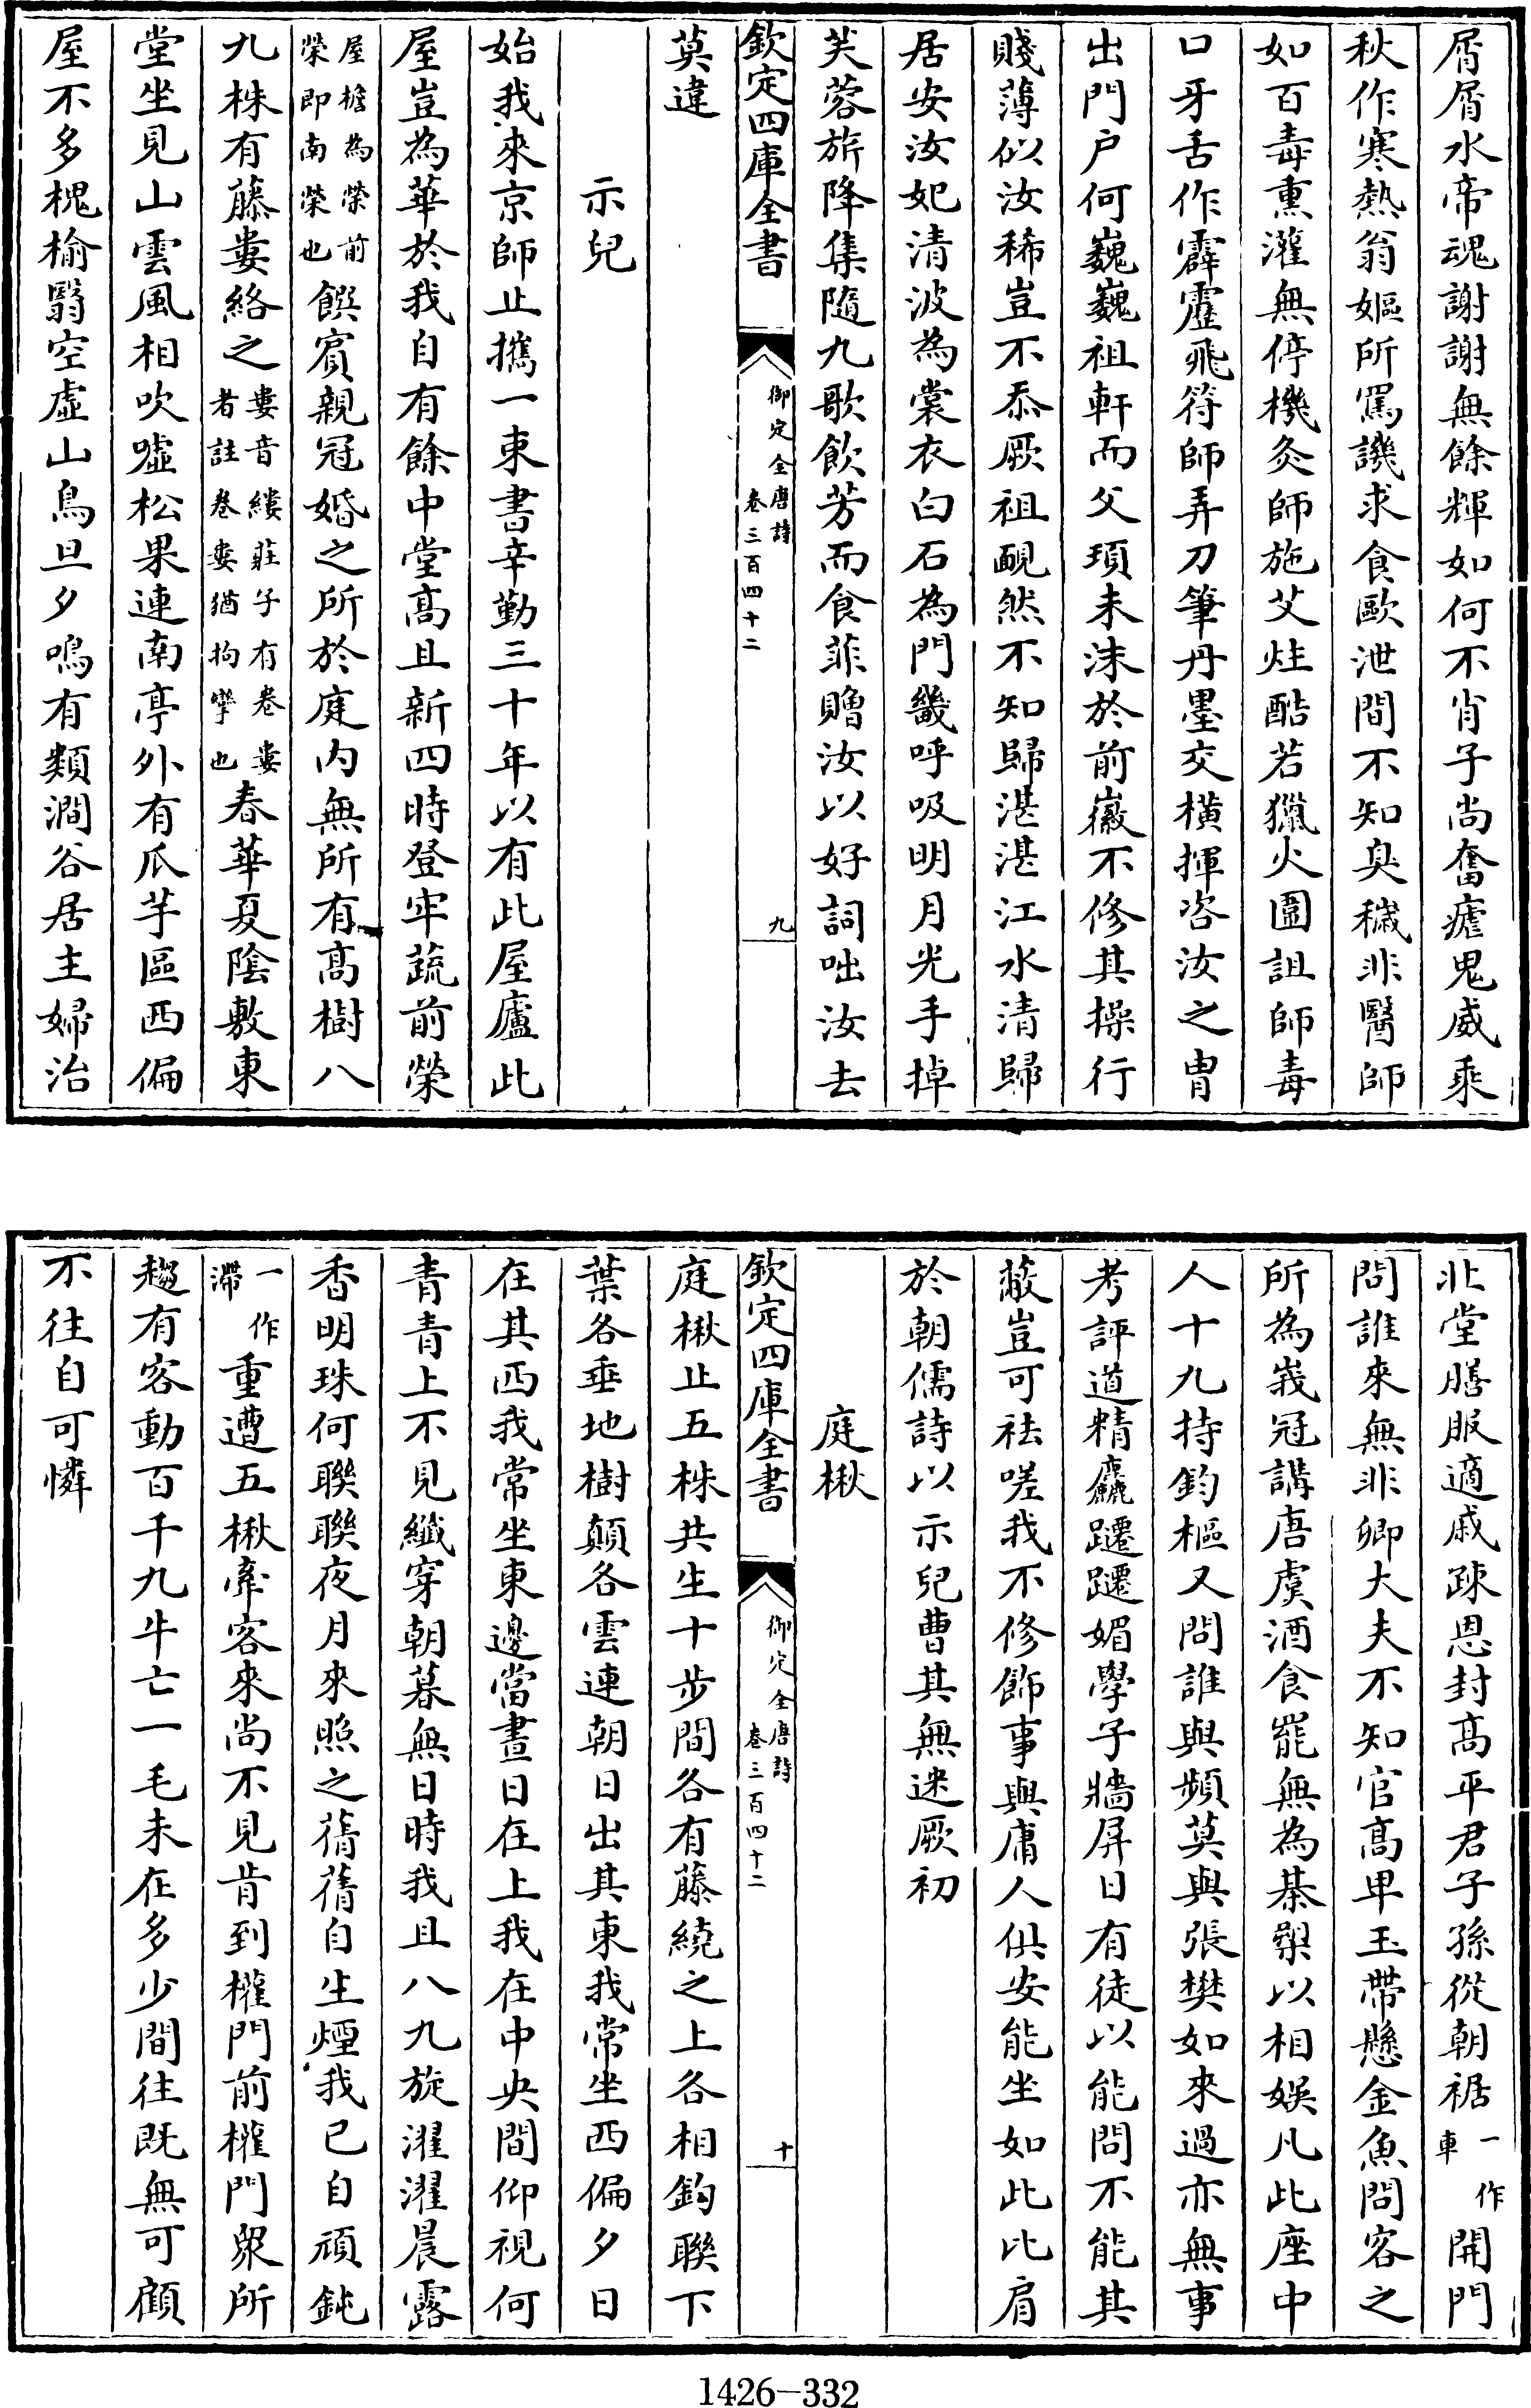 屑屑水帝魂謝謝無餘輝如何不肖子尚奮瘧鬼威乘
秋作寒熱翁嫗所罵譏求食歐泄間不知臭穢非醫師
如百毒熏灌無停機灸師施艾炷酷若獵火圍詛師毒
口牙舌作霹靂飛符師弄刀筆丹墨交橫揮咨汝之胄
出門户何巍巍祖軒而父頊未沫於前徽不修其操行
賤薄似汝稀豈不忝厥祖靦然不知歸湛湛江水清歸
居安汝妃清波為裳衣白石為門畿呼吸明月光手掉
芙蓉旂降集隨九歌飲芳而食菲贈汝以好詞咄汝去
欽定四庫全書 御定全唐詩 卷三百四十二 九
莫違
示兒
始我來京師止攜一束書辛勤三十年以有此屋廬此
屋豈為華於我自有餘中堂高且新四時登牢蔬前榮
屋檐為榮前榮即南榮也饌賓親冠婚之所於庭内無所有高樹八
九株有藤婁絡之婁音縷莊子有卷婁者註卷婁猶拘攣也春華夏陰敷東
堂坐見山雲風相吹噓松果連南亭外有瓜芋區西偏
屋不多槐榆翳空虛山鳥旦夕鳴有類澗谷居主婦治
北堂膳服適戚疎恩封高平君子孫從朝裾一作車開門
問誰來無非卿大夫不知官高卑玉帶懸金魚問客之
所為峩冠講唐虞酒食罷無為棊槊以相娛凡此座中
人十九持鈞樞又問誰與頻莫與張樊如來過亦無事
考評道精麤躚躚媚學子牆屏日有徒以能問不能其
蔽豈可祛嗟我不修飾事與庸人俱安能坐如此比肩
於朝儒詩以示兒曹其無迷厥初
庭楸
欽定四庫全書 御定全唐詩 卷三百四十二 十
庭楸止五株共生十步間各有藤繞之上各相鉤聯下
葉各垂地樹顛各雲連朝日出其東我常坐西偏夕日
在其西我常坐東邊當晝日在上我在中央間仰視何
青青上不見纖穿朝暮無日時我且八九旋濯濯晨露
香明珠何聯聯夜月來照之蒨蒨自生煙我已自頑鈍
一作滯重遭五楸牽客來尚不見肯到權門前權門衆所
趨有客動百千九牛亡一毛未在多少間往既無可顧
不往自可憐
1426—332